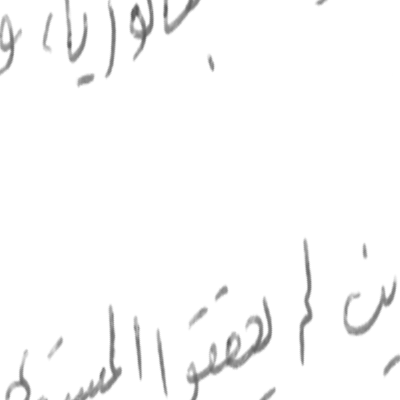 بكالوريا، و
ين لم يحققوا المستو